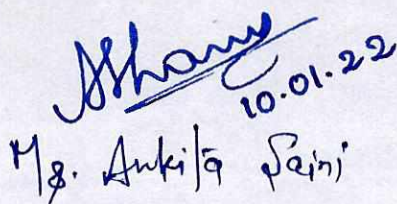 10.01.22
Ms. Ankita Saini